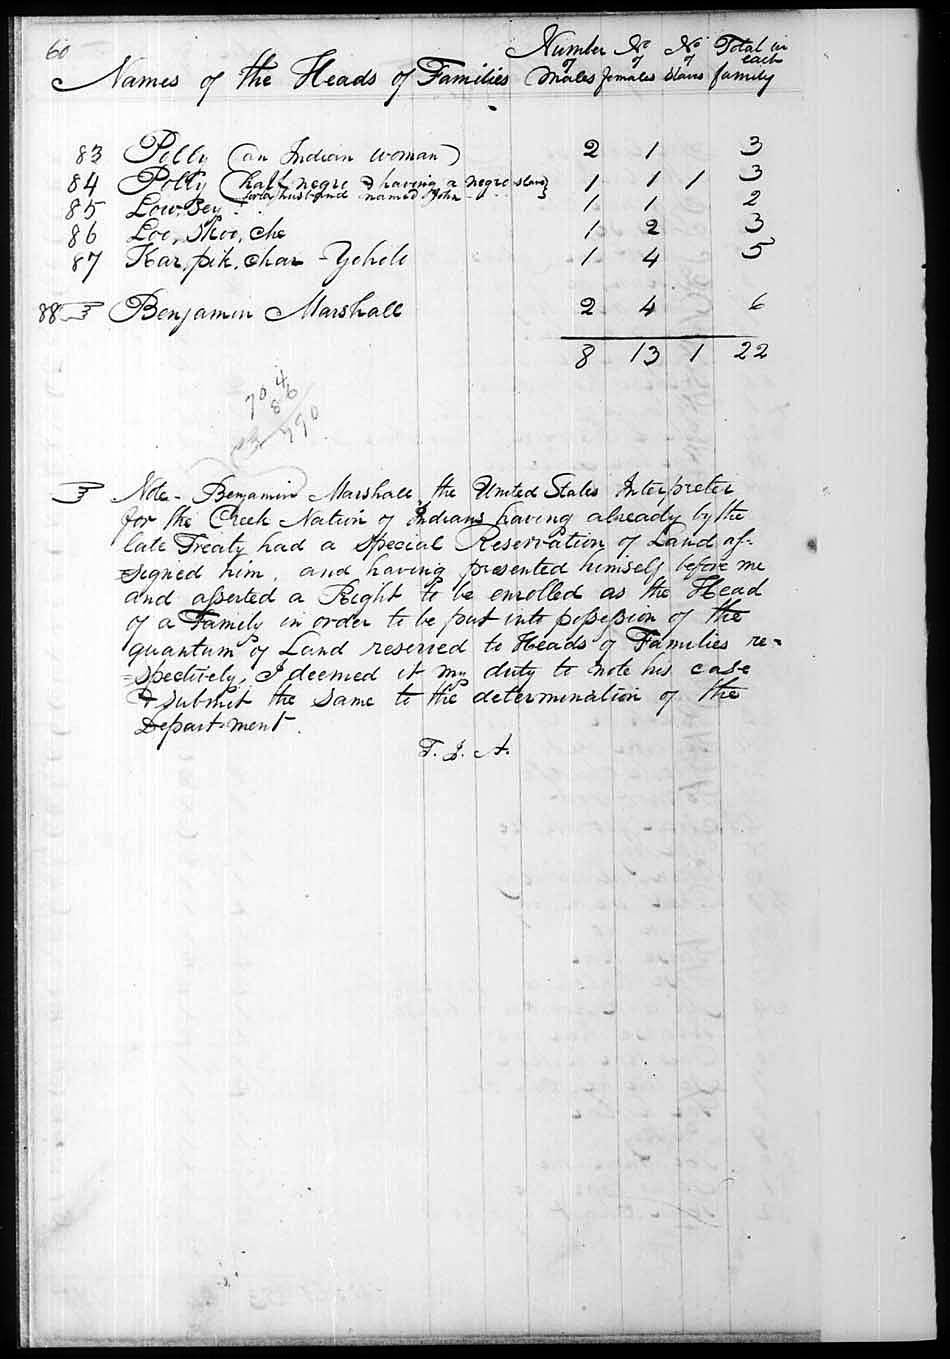 60
Number No No Total in
of of of each
Names of the Heads of Families Males females slaves family
83 Polly (an Indian woman) 2 1 3
84 Polly (half negro & having a negro slave 1 1 1 3
for a husband named John
85 Low, Sey 1 1 2
86 Loo, Skoo, che 1 2 3
87 Kar, pik, char - Yoholo 1 4 5
88 ☞ Benjamin Marshall 2 4 6
8 13 1 22
704
86
790
☞ Note - Benjamin Marshall, the United States Interpreter
for the Creek Nation of Indians having already by the
late Treaty had a special Reservation of Land as-
=signed him, and having presented himself before me
and asserted a Right to be enrolled as the Head
of a Family in order to be put into possession of the
quantum of Land reserved to Heads of Families re=
=spectively, I deemed it my duty to note his case
& submit the same to the determination of the
Depart-ment.
T. J. A.